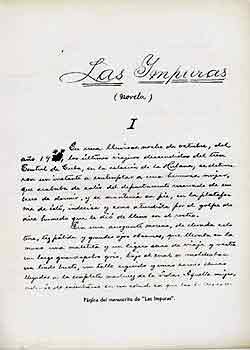 Las Impuras
(Novela)
I
En una lluviosa noche de octubre, del
año 19 los últimos viajeros descendidos del tren
Central de Cuba, en la estación de la Habana, se detuvie-
ron un instante a contemplar a una hermosa mujer,
que acababa de salir del departamento reservado de un
coche de dormir, y se mantenía en pie, en la platafor-
ma de éste, indecisa y como aturdida por el golpe de
aire húmedo que le dió de lleno en el rostro.
Era una arrogante morena, de elevada esta-
tura, tez pálida y grandes ojos obscuros, que llevaba en la
mano una maletita y un ligero saco de viaje, y vestía
un largo guardapolvo gris, bajo el cual se moldeaban
un lindo busto, un talle seguido y unas caderas
llegadas a la completa madurez de la Aquella mujer,
Página del manuscrito de "Las Impuras".